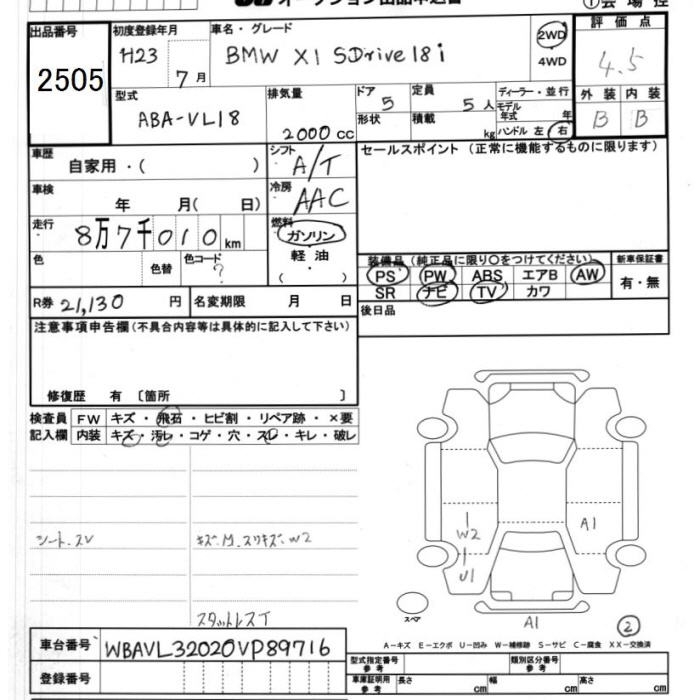 オークション出品申込書
①会場控
出品番号
2505
初度登録年月
H23 7月
車名・グレード
BMW X1 SDrive18i
2WD
4WD
評価点
4.5
型式
ABA-VL18
排気量
2000cc
ドア 5
定員 5人
ディーラー・並行
モデル年式 年
形状
積載 kg
ハンドル 左 右
外装 内装
B B
車歴
自家用・( )
シフト
A/T
セールスポイント(正常に機能するものに限ります)
車検
年 月( 日)
冷房
AAC
走行
8万7千010km
燃料
ガソリン
軽油
( )
色
色替
色コード
?
装備品(純正品に限り○をつけてください)
新車保証書
PS PW ABS エアB AW
SR ナビ TV カワ
有・無
R券 21,130円
名変期限 月 日
後日品
注意事項申告欄(不具合内容等は具体的に記入して下さい)
修復歴 有〔箇所 〕
検査員 FW キズ・飛石・ヒビ割・リペア跡・×要
記入欄 内装 キズ・汚レ・コゲ・穴・スレ・キレ・破レ
シート.スレ
キズ.M.スリキズ.W2
W2
U1
A1
スタットレスT
スペア
A1
②
A-キズ E-エクボ U-凹み W-補修跡 S-サビ C-腐食 XX-交換済
車台番号 WBAVL32020VP89716
型式指定番号 参考
類別区分番号 参考
登録番号
車庫証明用 参考 長さ cm 幅 cm 高さ cm